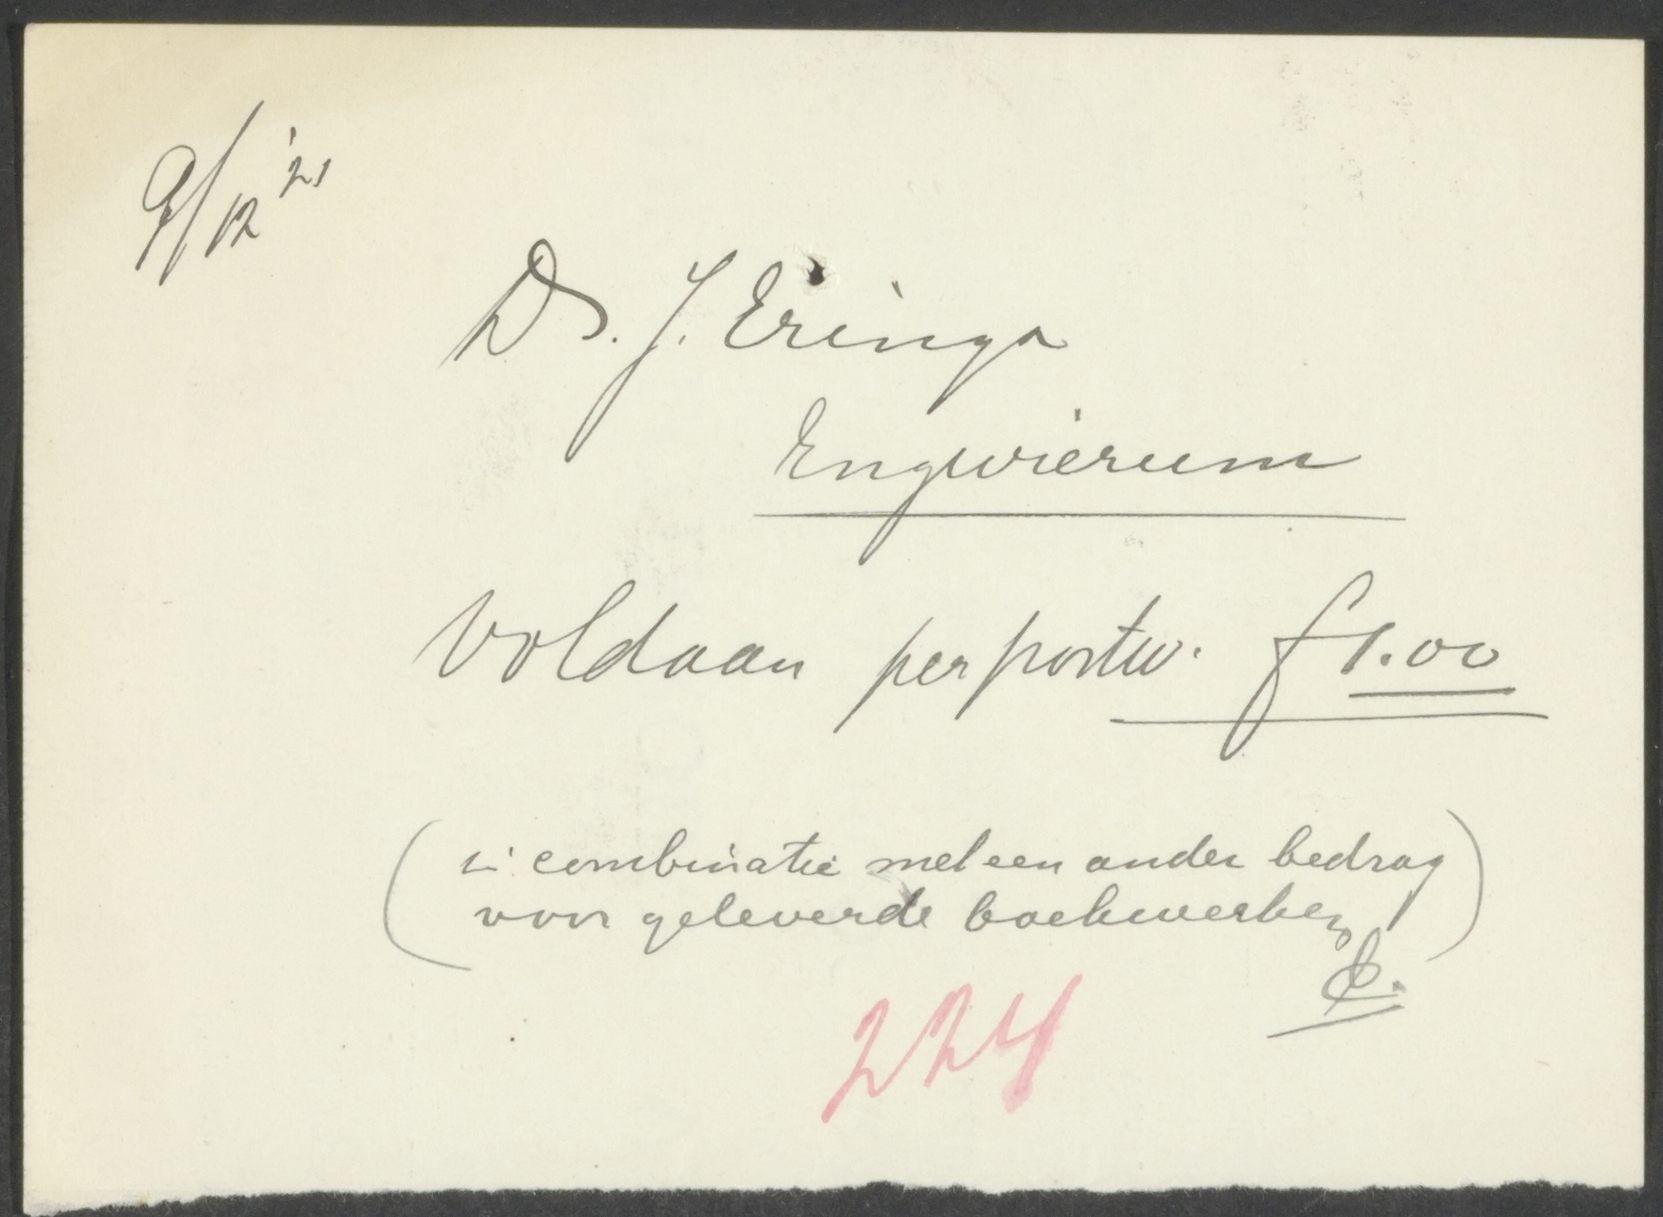 9/12 '21
Ds. J. Eringa
Engwierum
Voldaan per postw. f 1.00
(in combinatie met een ander bedrag
voor geleverde boekwerken)
224